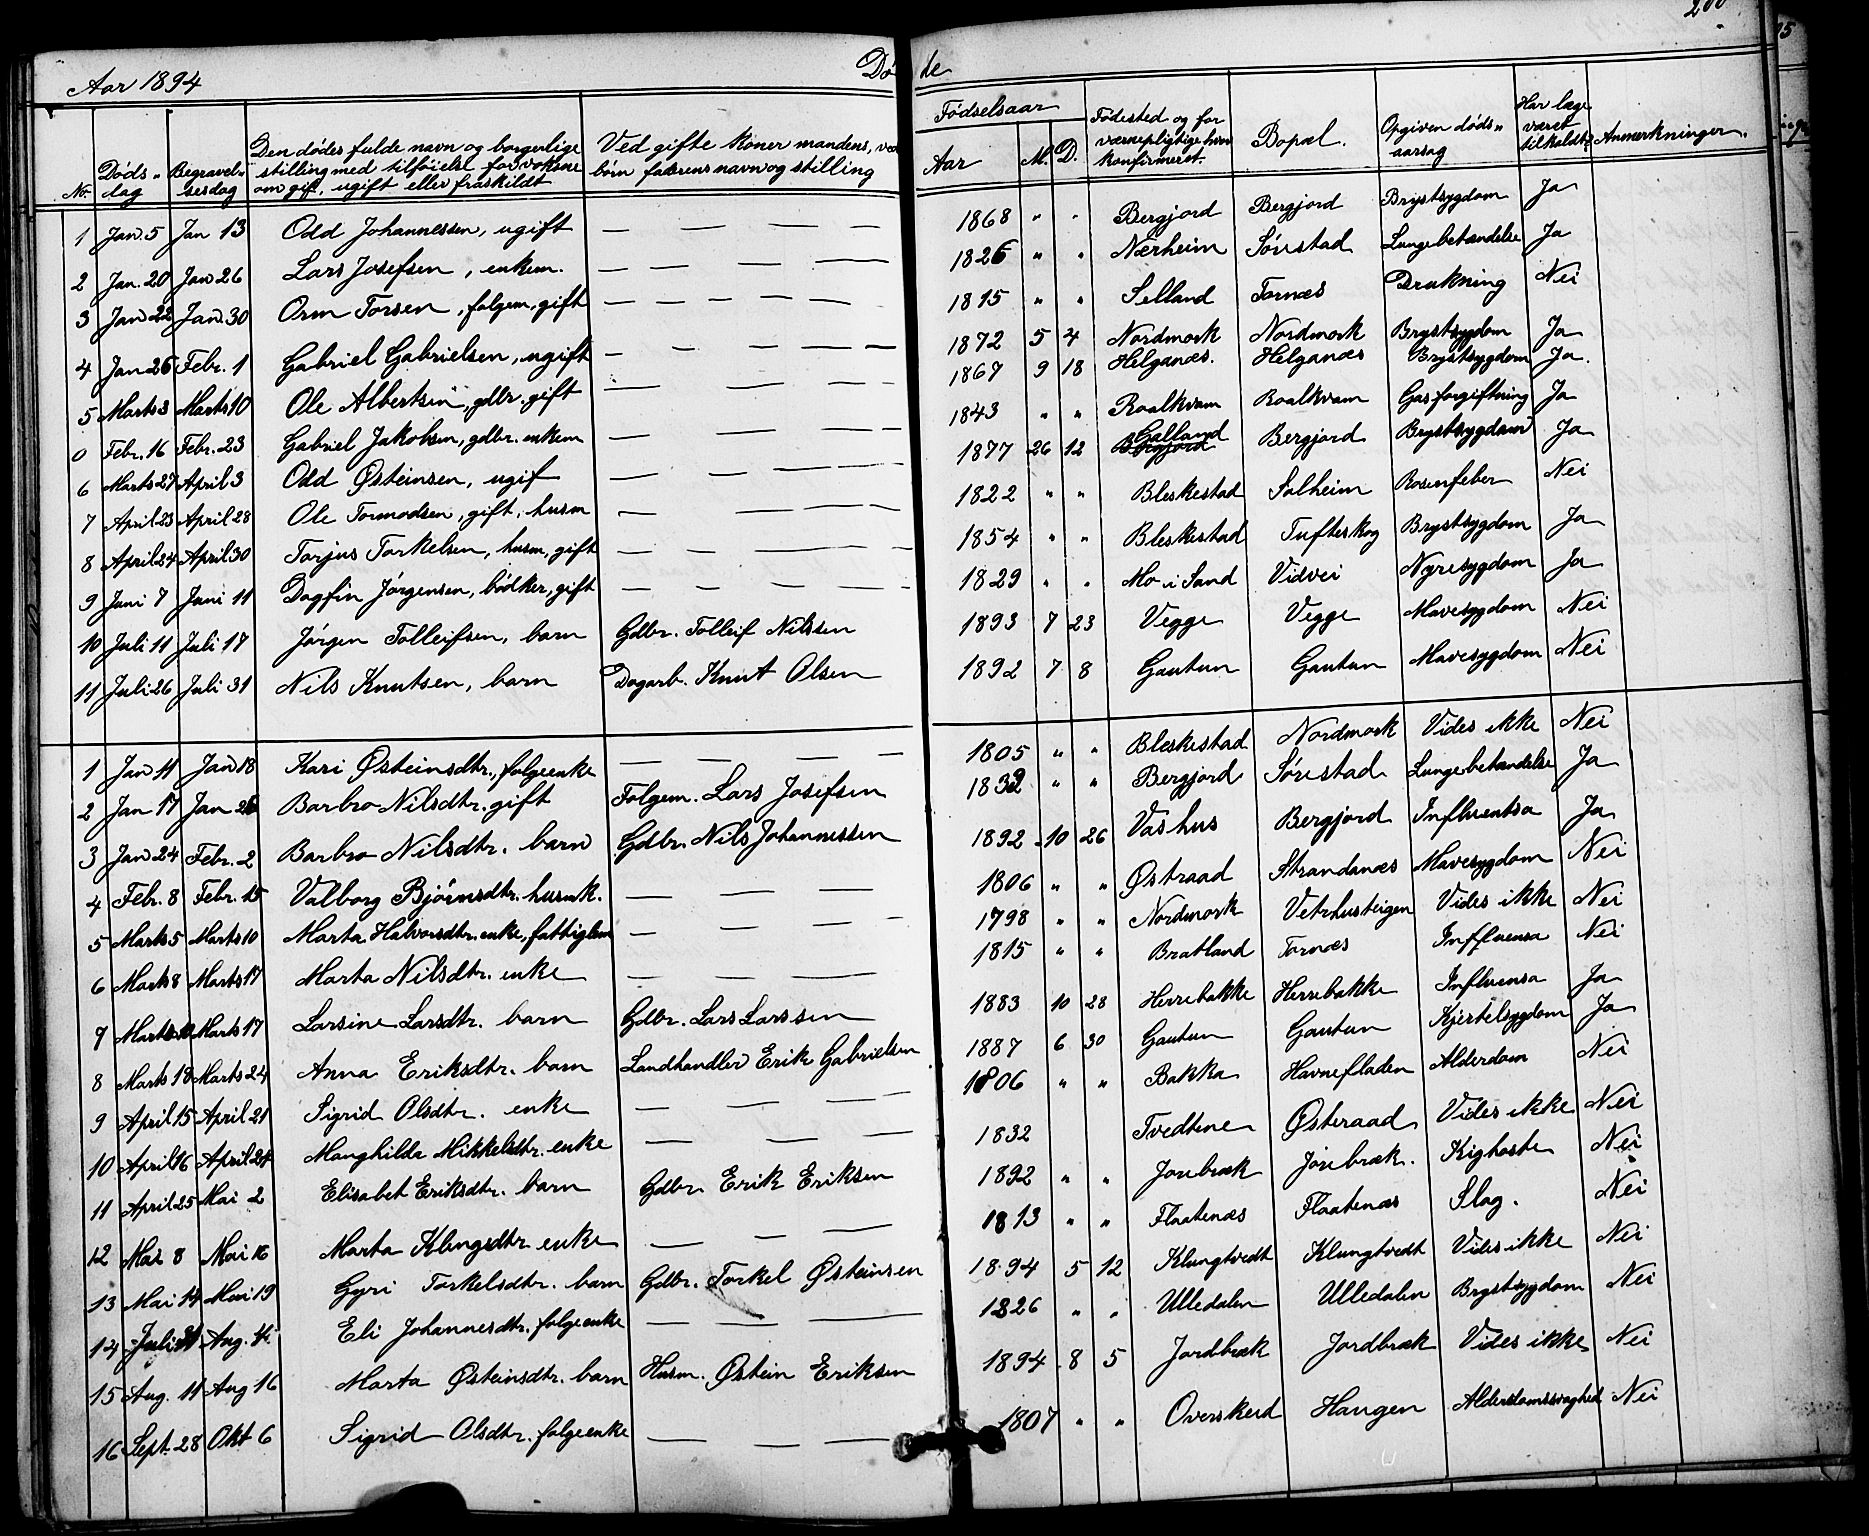 Aar 1894 Døde 200
Nr. Døds- dag Begravel- sesdag Den dødes fulde navn og borgerlige stilling med tilføielse for voksne om gift, ugift eller fraskildt Ved gifte koner mandens, ved børn faderens navn og stilling Fødselsaar Aar M. D. Fødested og for værnepligtige hvor konfirmeret. Bopæl. Opgiven døds- aarsag Har læge været tilkaldt? Anmerkninger.
1 Jan. 5 Jan 13 Odd Johannessen, ugift — — — — 1868 " " Bergjord Bergjord Brystsygdom Ja
2 Jan. 20 Jan 26 Lars Josefsen, enkem. — — — — 1826 " " Nærheim Sørestad Lungebetændelse Ja
3 Jan 22 Jan. 30 Orm Torsen, folgem, gift — — — — 1815 " " Selland Tornæs Drukning Nei
4 Jan 26 Febr. 1 Gabriel Gabrielsen, ugift — — — — 1872 5 4 Nordmork Nordmork Brystsygdom Ja
5 Marts 3 Marts 10 Ole Albertsen, gdbr. gift — — — — 1867 9 18 Helganæs. Helganæs Brystsygdom Ja.
0 Febr. 16 Febr. 23 Gabriel Jakobsen, gdbr. enkem — — — — 1843 " " Roalkvam Roalkvam Gasforgiftning Ja
6 Marts 27 April 3 Odd Østeinsen, ugif — — — — 1877 26 12 Galland Bergjord Bergjord Brystsygdom Ja
7 April 23 April 28 Ole Tormodsen, gift, husm — — — — 1822 " " Bleskestad Solheim Rosenfeber Nei
8 April 24 April 30 Torjus Torkelsen, husm, gift — — — — 1854 " " Bleskestad Tufteskog Brystsygdom Ja
9 Juni 7 Juni 11 Dagfin Jørgensen, bødker, gift — — — — 1829 " " Mo i Sand Vidvei Nyresygdom Ja
10 Juli 11 Juli 17 Jørgen Tolleifsen, barn Gdbr. Tolleif Nilssen 1893 7 23 Vegge Vegge Mavesygdom Nei
11 Juli 26 Juli 31 Nils Knutsen, barn Dagarb. Knut Olsen 1892 7 8 Gautun Gautun Mavesygdom Nei
1 Jan 11 Jan 18 Kari Østeinsdtr., folgeenke — — — — 1805 " " Bleskestad Nordmork Vides ikke Nei
2 Jan 17 Jan 26 Barbro Nilsdtr. gift Folgem. Lars Josefsen 1832 " " Bergjord Sørestad Lungebetændelse Ja
3 Jan 24 Febr. 2 Barbro Nilsdtr. barn Gdbr. Nils Johannessen 1892 10 26 Vashus Bergjord Influentsa Ja
4 Febr. 8 Febr. 15 Valborg Bjørnsdtr. husmk. — — — 1806 " " Østraad Strandanæs Mavesygdom Nei
5 Marts 5 Marts 10 Marta Halvorsdtr. enke, fattiglem — — — — 1798 " " Nordmork Vetrhusteigen Vides ikke Nei
6 Marts 8 Marts 17 Marta Nilsdtr. enke — — — 1815 " " Bratland Tornæs Influensa Nei
7 Marts Marts 17 Larsine Larsdtr. barn Gdbr. Lars Larssen 1883 10 28 Herrebakke Herrebakke Influensa Ja
8 Marts 18 Marts 24 Anna Eriksdtr. barn Landhandler Erik Gabrielsen 1887 6 30 Gautun Gautun Kjertelsygdom Ja
9 April 15 April 21 Sigrid Olsdtr. enke — — — — 1806 " " Bakka Havnefladen Alderdom Nei
10 April 16 April 24 Manghilda Mikkelsdtr. enke — — — 1832 Tvedtene Østeraad Vides ikke Nei
11 April 25 Mai 2 Elisabet Eriksdtr. barn Gdbr. Erik Eriksen 1892 " " Jorebræk Jorebræk. Kighoste Nei
12 Mai 8 Mai 16 Marta Klengsdtr enke — — — 1813 " " Flaatenæs Flaatenæs Slag. Nei
13 Mai 14 Mai 19 Gyri Torkelsdtr. barn Gdbr. Torkel Østeinsen 1894 5 12 Klungtvedt Klungtvedt Vides ikke Nei
14 Juli 31 Aug. 4. Eli Johannesdtr. folgeenke — — — 1826 " " Ulledalen Ulledalen Brystsygdom Nei
15 Aug. 11 Aug 16 Marta Østeinsdtr. barn Husm. Østein Eriksen 1894 8 5 Jordbræk Jordbræk Vides ikke Nei
16 Sept. 28 Okt 6 Sigrid Olsdtr. folgeenke — — — 1807 " " Overskeid Haugen Alderdomssvaghed Nei